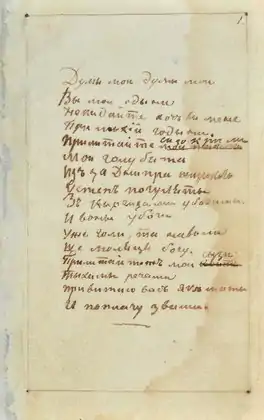 1
Думы мои думы мои
Вы мои одыни
Некидайте хочь вы мене
При лыхій годыни.
Прылитайте сызокрыли
Мои голубята
Изъ за Днипра широкого
У степъ погуляты
Въ Кыргизами убогыми
И воны убоги
Ужъ голи, та на воли
Ще молятця Богу.
Прылитайтежъ мои
Тыхымы речамы
Прывитаю васъ якъ диточокъ
И поплачу зъ вами.